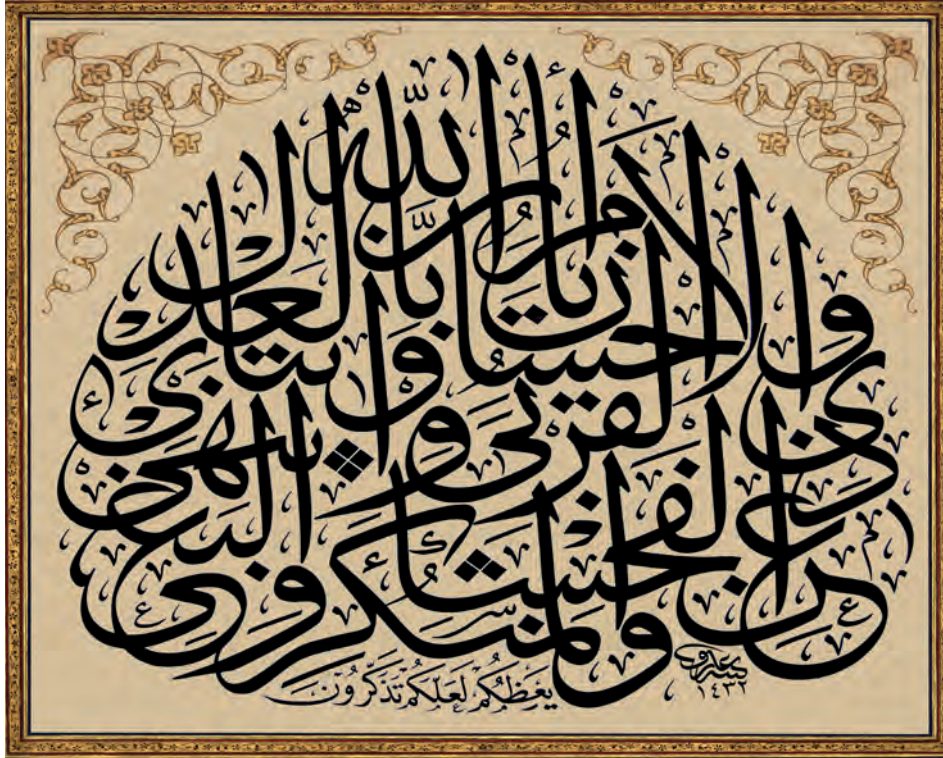 إن الله يأمر بالعدل والإحسان وإيتائ ذى القربى وينهى عن الفحشاء والمنكر والبغى
يَعِظُكُمْ لَعَلَّكُمْ تَذَكَّرُونَ
١٤٣٢